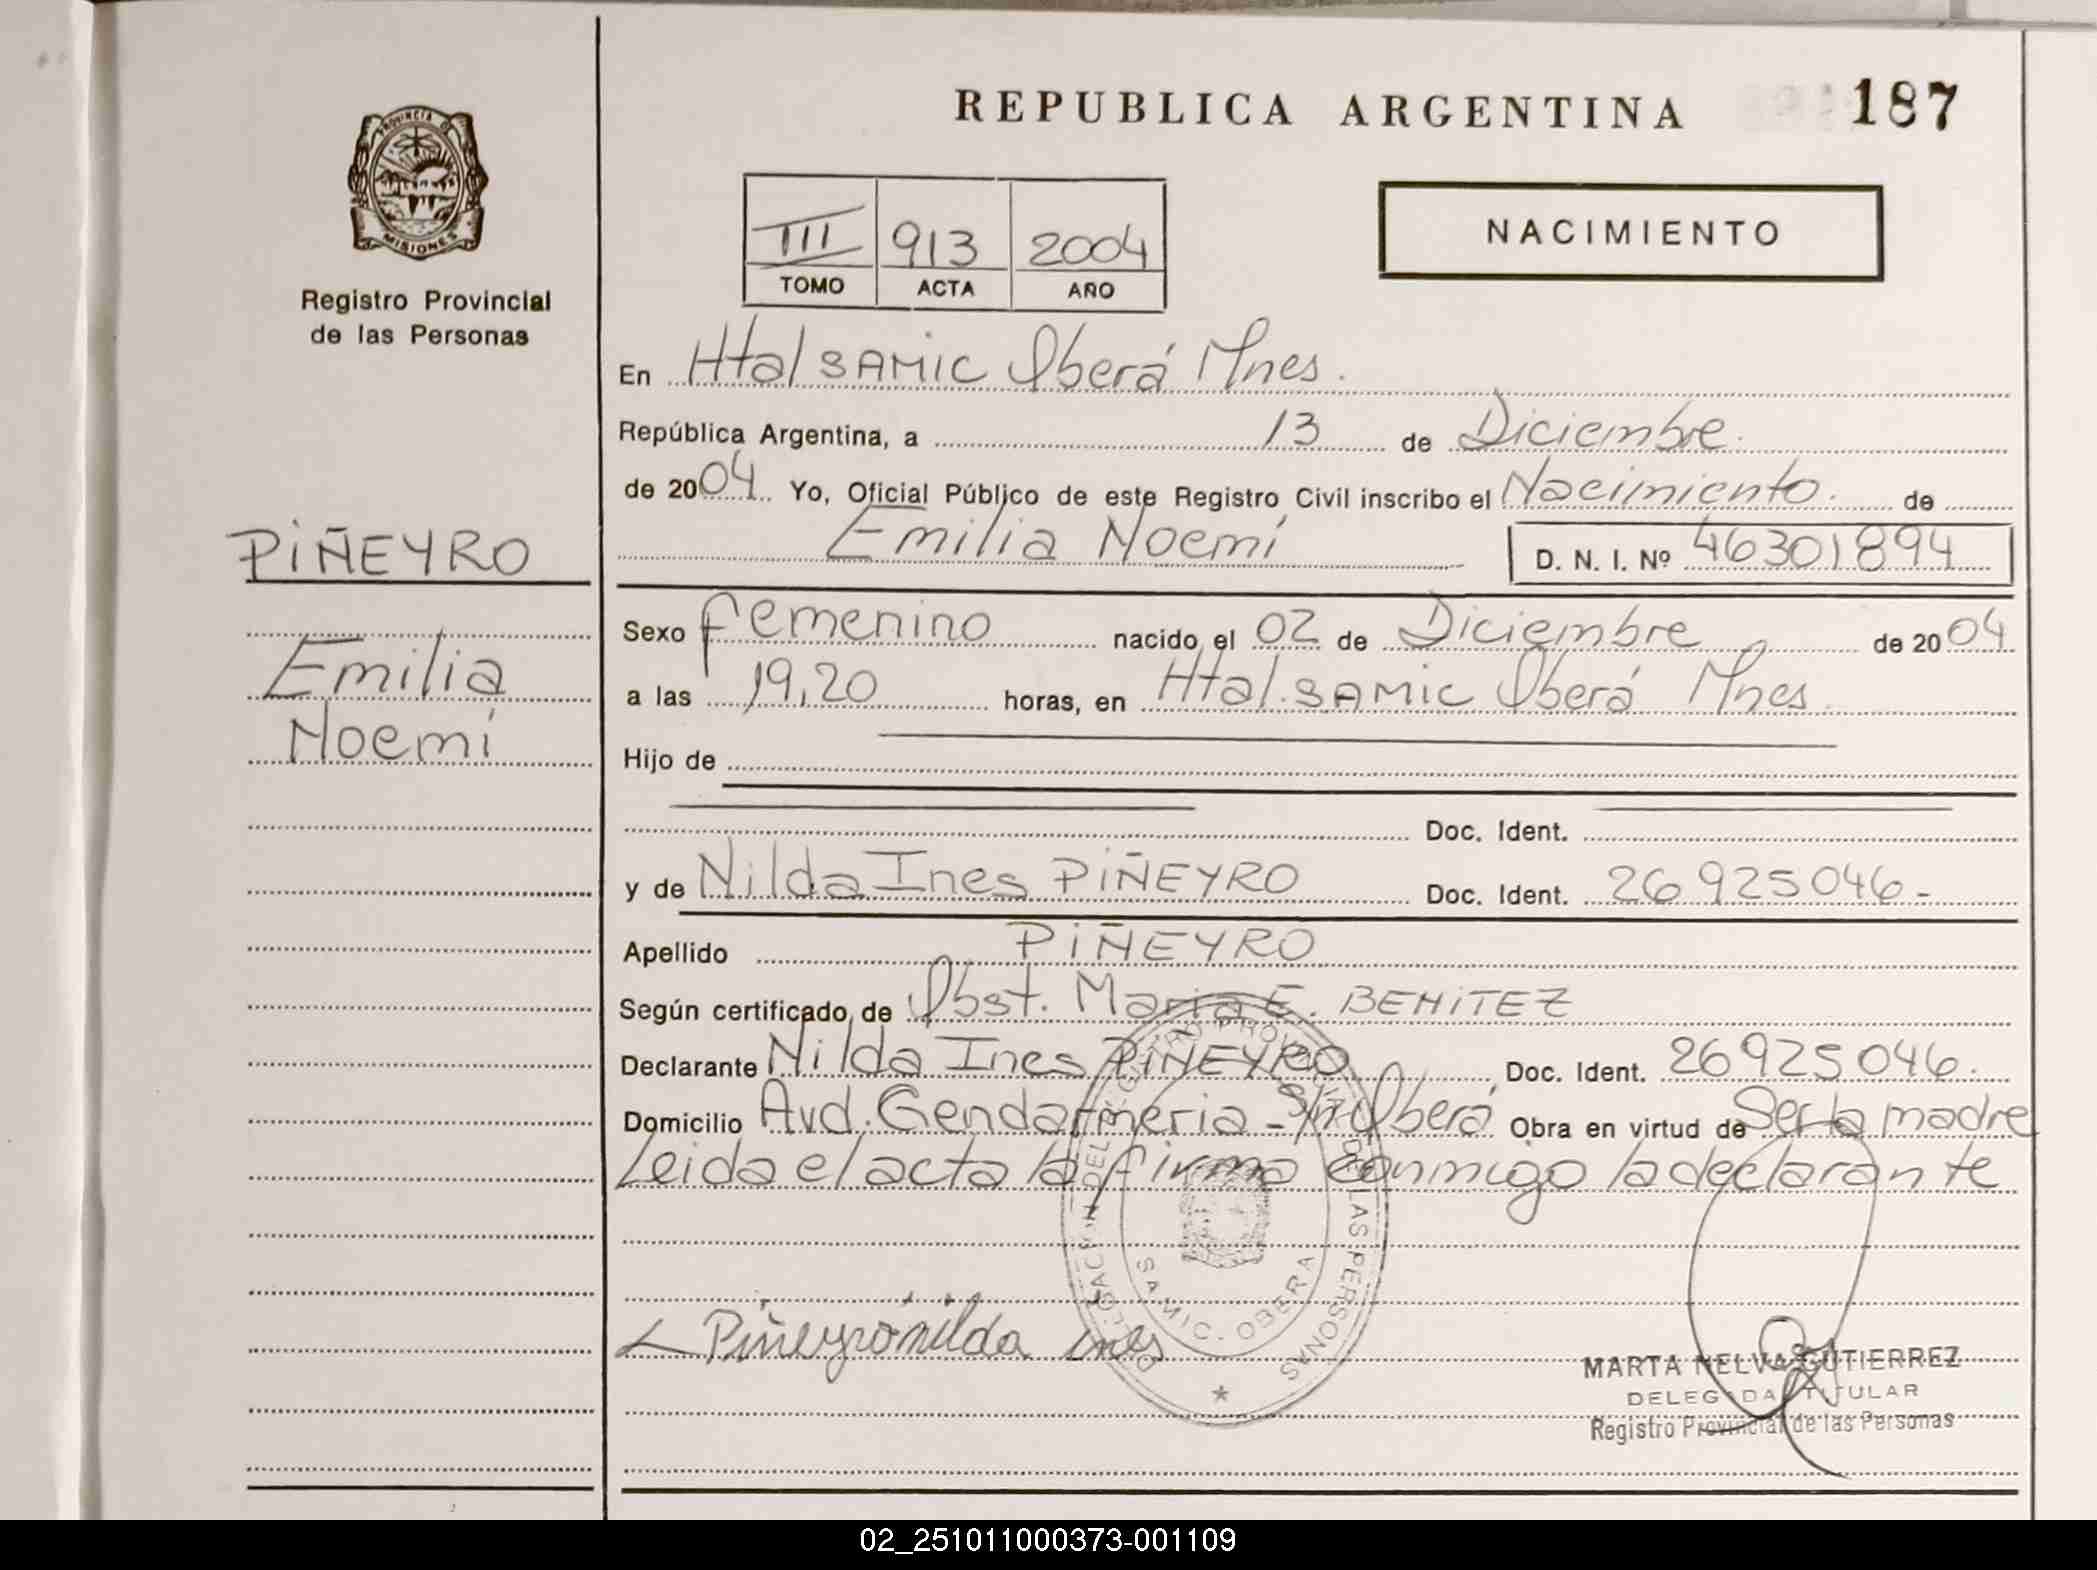 REPUBLICA ARGENTINA
187
PROVINCIA D
MISIONES
Registro Provincial
de las Personas
NACIMIENTO
III 913 2004
TOMO ACTA AÑO
En Htal SAMIC Oberá Mnes.
República Argentina, a 13 de Diciembre.
de 2004. Yo, Oficial Público de este Registro Civil inscribo el Nacimiento. de
Emilia Noemí D. N. I. Nº 46301894
PIÑEYRO
Emilia
Noemí
Sexo Femenino nacido el 02 de Diciembre de 2004
a las 19,20 horas, en Htal. SAMIC Oberá Mnes.
Hijo de
Doc. Ident.
y de Nilda Ines PIÑEYRO Doc. Ident. 26925046-
Apellido PIÑEYRO
Según certificado de Obst. Maria E. BENITEZ
Declarante Nilda Ines PIÑEYRO Doc. Ident. 26925046.
Domicilio Avd. Gendarmeria - S/n Oberá Obra en virtud de Ser la madre
Leida el acta la firma conmigo la declarante
DELEGACION DEL REGISTRO PROVINCIAL DE LAS PERSONAS
SAMIC. OBERA
Piñeyro nilda ines
MARTA NELVA GUTIERREZ
DELEGADA TITULAR
Registro Provincial de las Personas
02_251011000373-001109